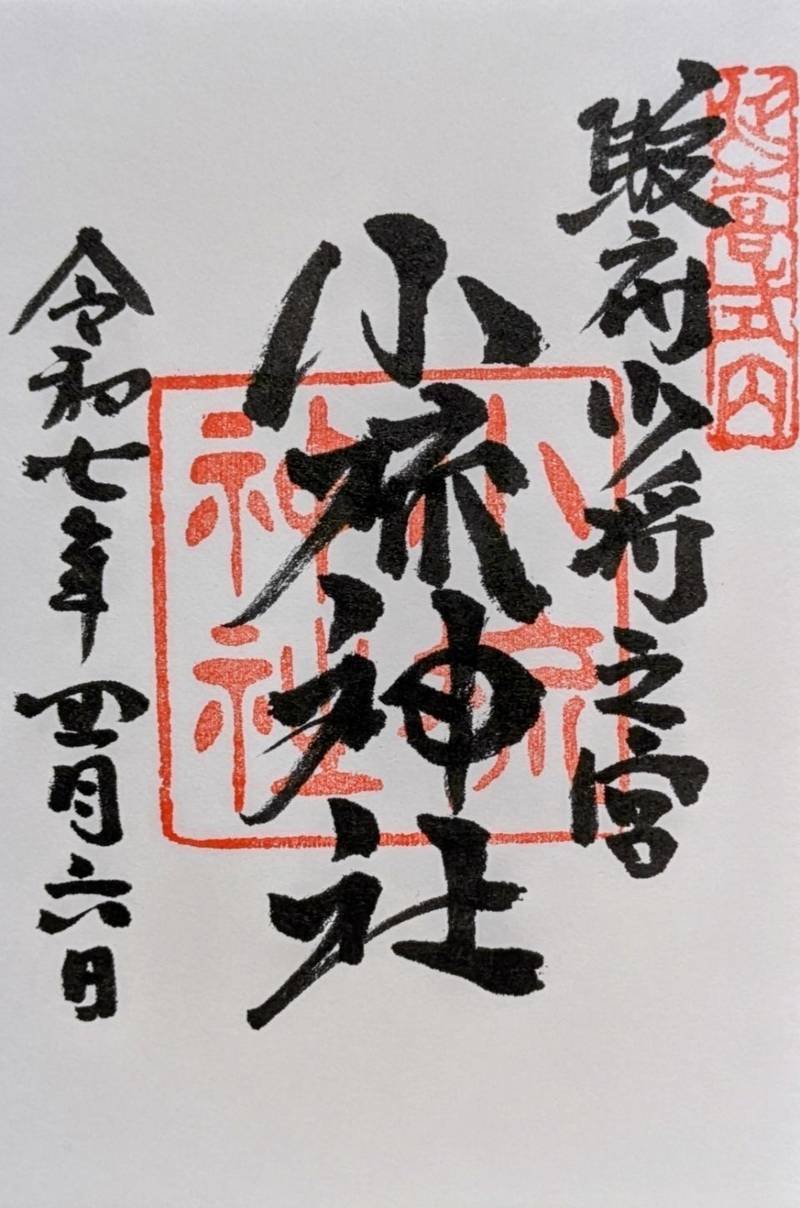 延喜式内
駿府少将之宮
小梳神社
小梳神社
令和七年四月六日